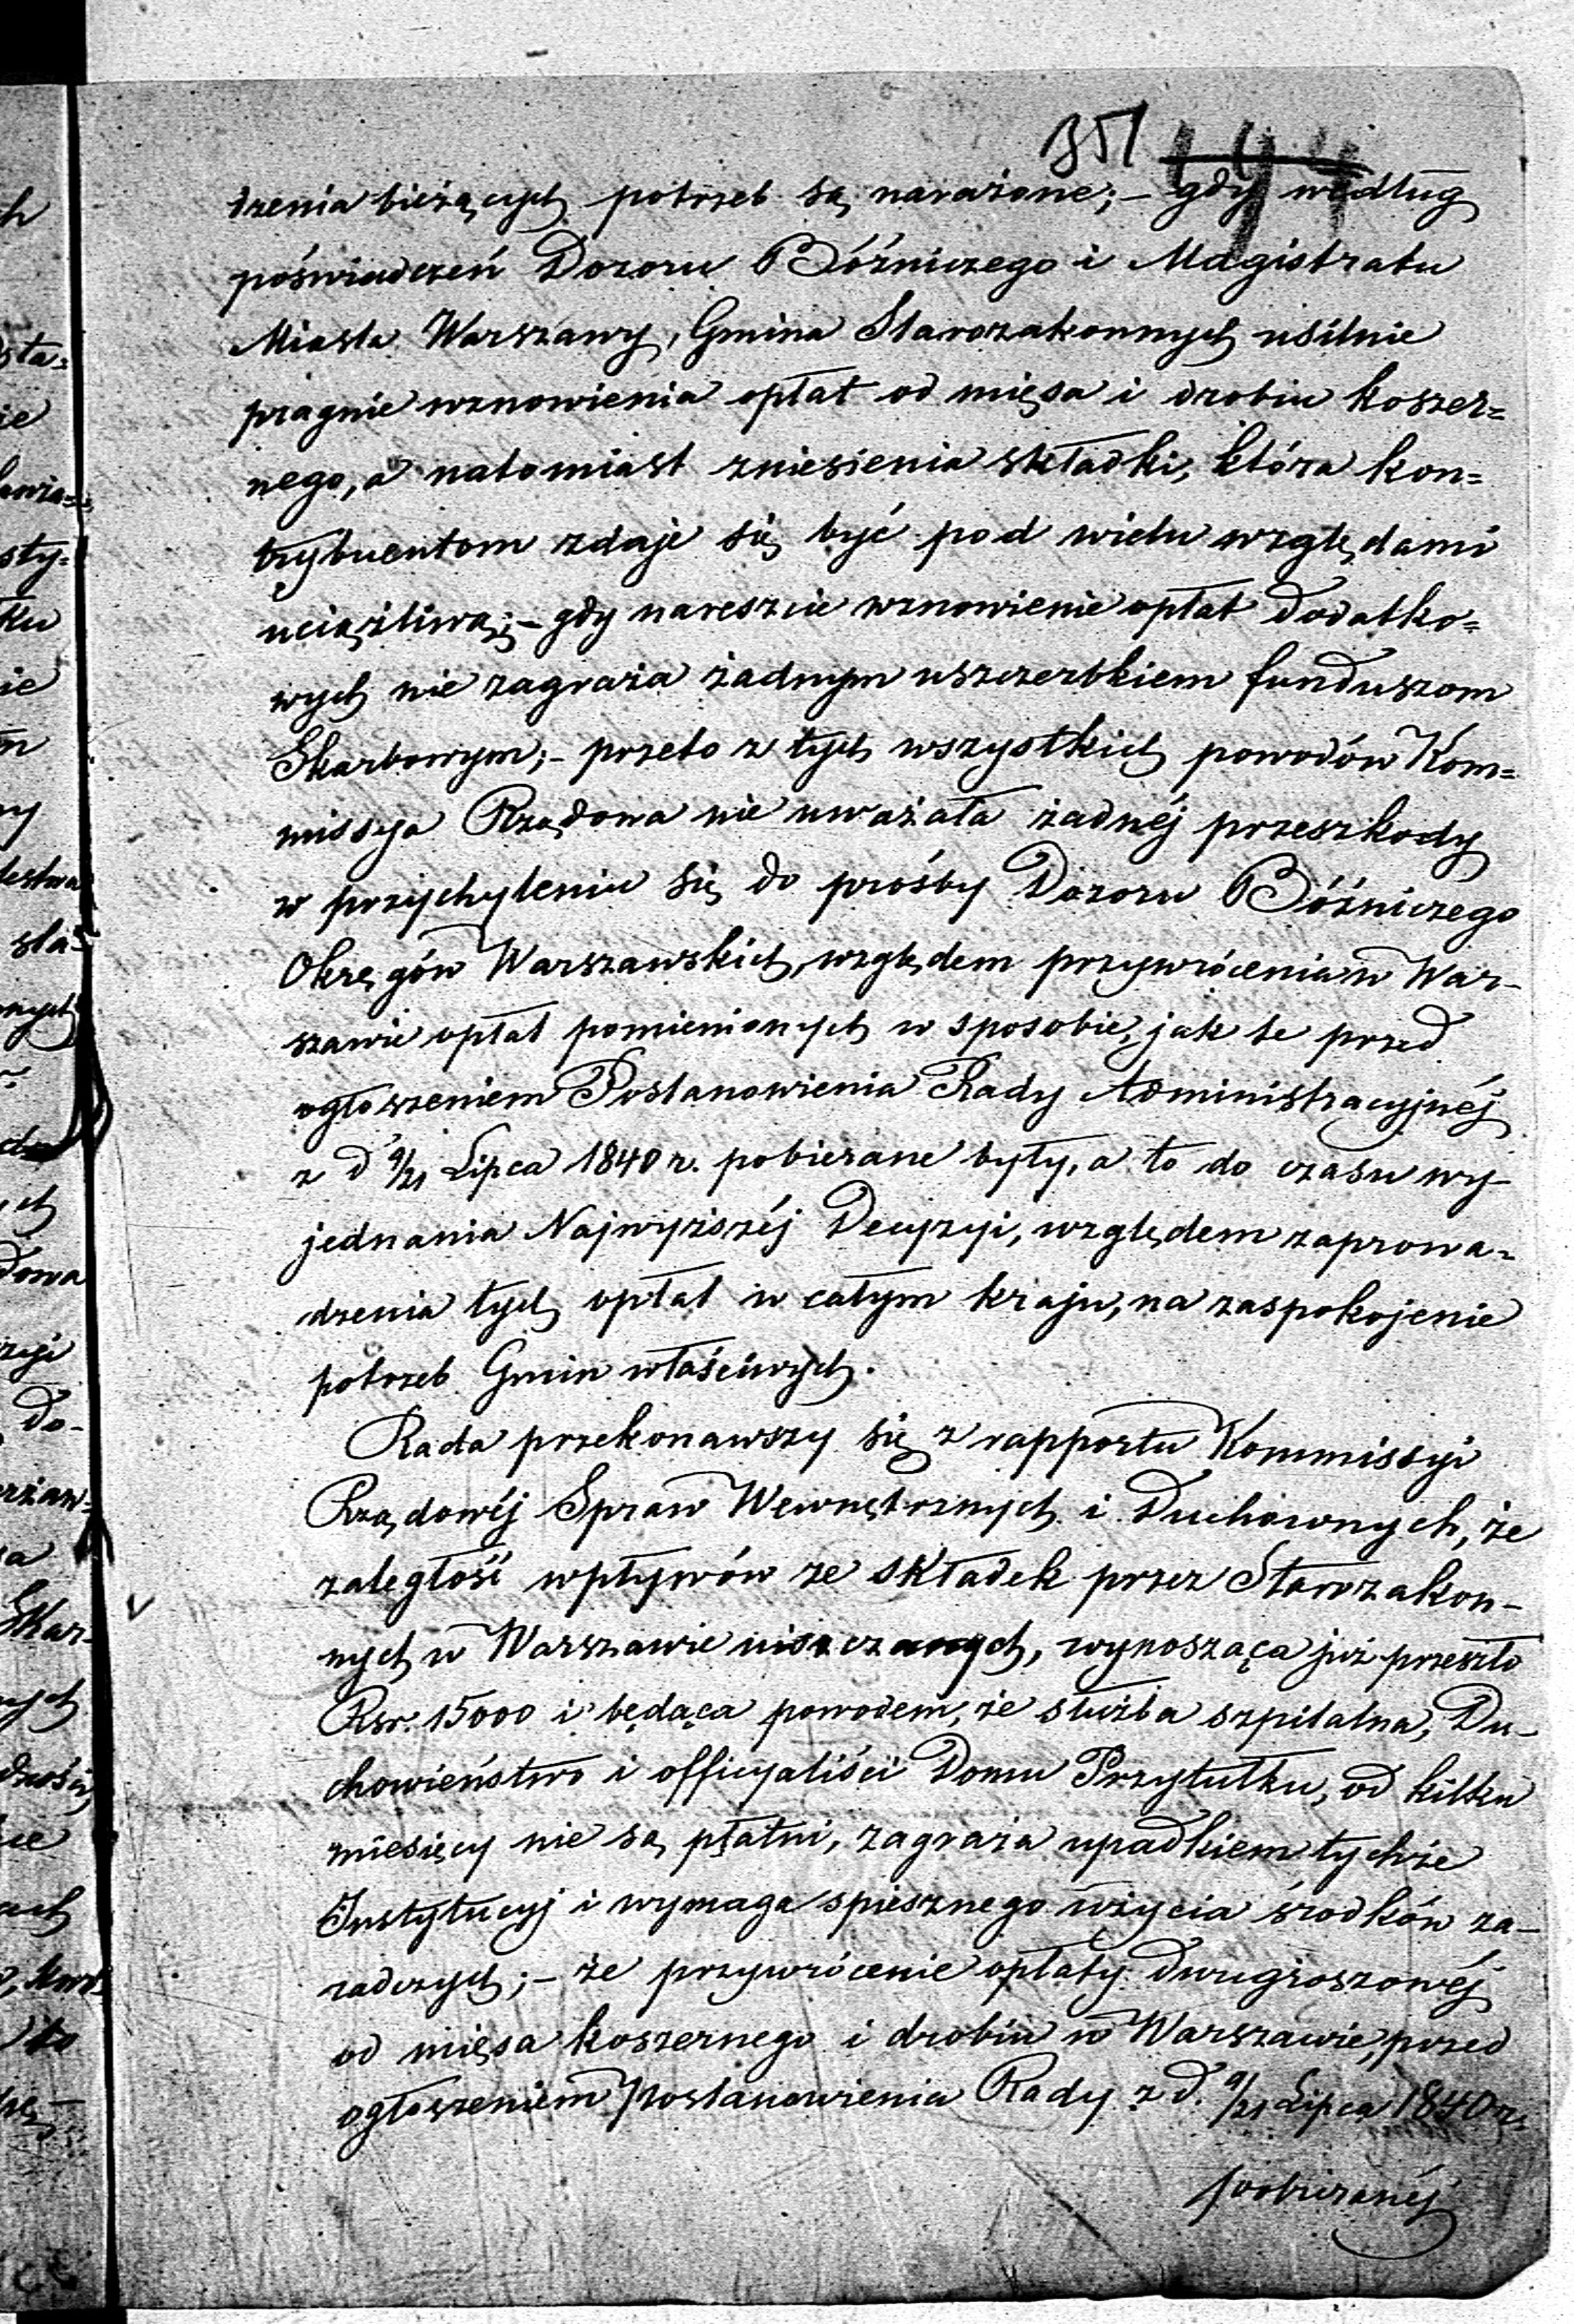 351 194
dzenia bieżących potrzeb są narażone; – gdy według
poświadczeń Dozoru Bóźniczego i Magistratu
Miasta Warszawy, Gmina Starozakonnych usilnie
pragnie wznowienia opłat od mięsa i drobiu koszer=
nego, a natomiast zniesienia składki, która kon=
trybuentom zdaje się być pod wielu względami
uciążliwą; – gdy nareszcie wznowienie opłat dodatko=
wych nie zagraża żadnym uszczerbkiem funduszom
Skarbowym; – przeto z tych wszystkich powodów Kom=
missya Rządowa nie uważała żadnéj przeszkody
w przychyleniu się do prośby Dozoru Bóźniczego
Okręgów Warszawskich, względem przywrócenia w War-
szawie opłat pomienionych w sposobie, jak te przed
ogłoszeniem Postanowienia Rady Administracyjnéj
z d 9/21 Lipca 1840 r. pobierane były, a to do czasu wy-
jednania Najwyższéj Decyzyi, względem zaprowa-
dzenia tych opłat w całym kraju, na zaspokojenie
potrzeb Gmin właściwych.
Rada przekonawszy się z rapportu Kommissyi
Rządowéj Spraw Wewnętrznych i Duchownych, że
zaległość wpływów ze składek przez Starozakon-
nych w Warszawie uiszczanych, wynosząca już przeszło
Rsr. 15000 i będąca powodem, że służba szpitalna, Du-
chowieństwo i officyaliści Domu Przytułku, od kilku
miesięcy nie są płatni, zagraża upadkiem tychże
Instytucyj i wymaga spiesznego użycia środków za-
radczych; – że przywrócenie opłaty dwugroszowéj
od mięsa koszernego i drobiu w Warszawie, przed
ogłoszeniem Postanowienia Rady z d. 9/21 Lipca 1840 r.
pobieranéj